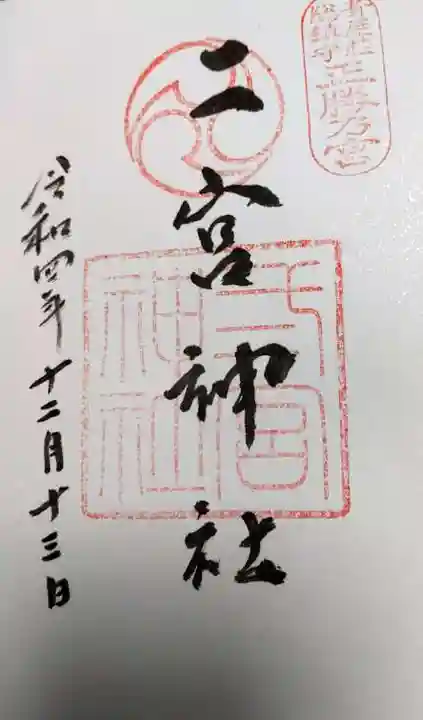 二宮神社
令和四年十二月十三日
二宮
神社